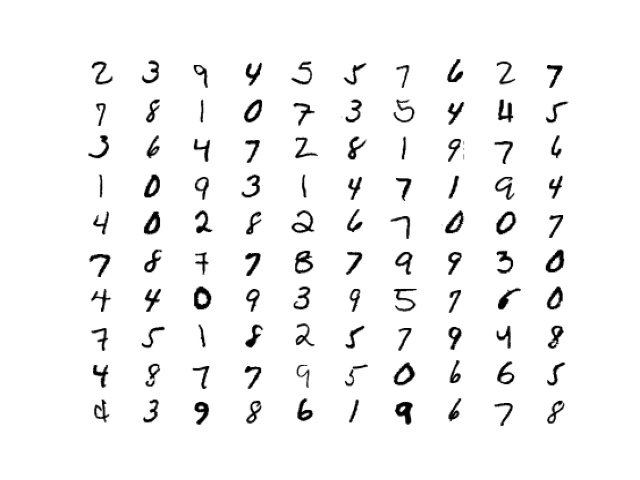 2 3 9 4 5 5 7 6 2 7
7 8 1 0 7 3 5 4 4 5
3 6 4 7 2 8 1 9 7 6
1 0 9 3 1 4 7 1 9 4
4 0 2 8 2 6 7 0 0 7
7 8 7 7 8 7 9 9 3 0
4 4 0 9 3 9 5 7 6 0
7 5 1 8 2 5 7 9 4 8
4 8 7 7 9 5 0 6 6 5
4 3 9 8 6 1 9 6 7 8